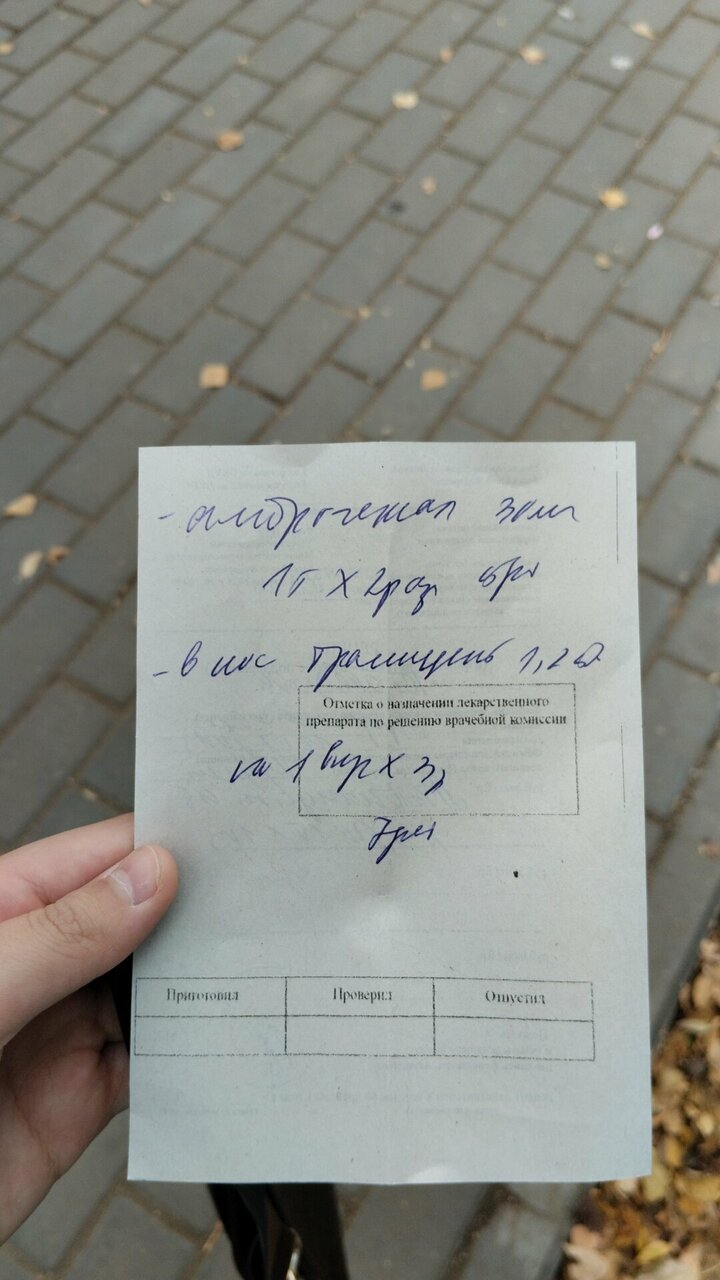 - амброгексал 30мг
1т X 2раз 5дн
- в нос
Отметка о назначении лекарственного
препарата по решению врачебной комиссии
по 1 впр X 3р
7дн
Приготовил Проверил Отпустил